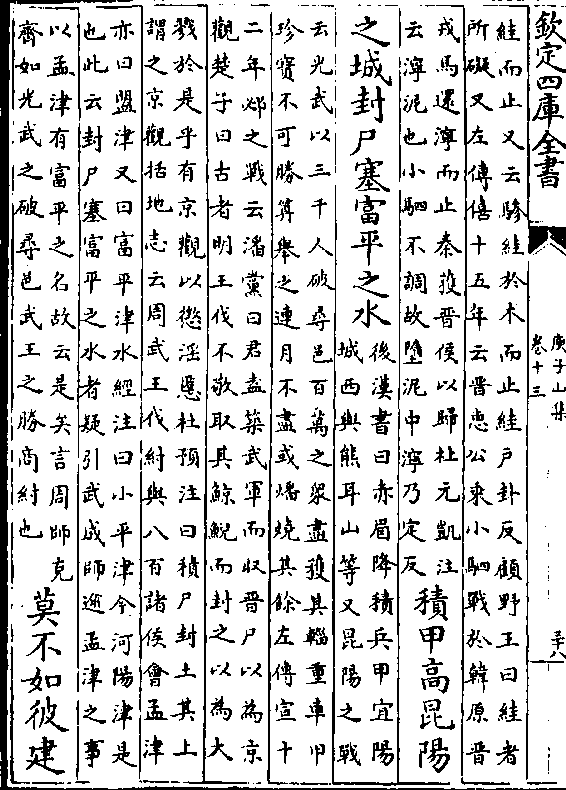 欽定四庫全書
庾子山集
卷十三
三十八
絓而止又云驂絓於木而止絓戶卦反顧野王曰絓者
所礙又左傳僖十五年云晋惠公乗小駟戰於韓原晋
戎馬還濘而止秦獲晋侯以歸杜元凱注
云濘泥也小駟不調故墮泥中濘乃定反
積甲高昆陽
之城封尸塞富平之水
後漢書曰赤眉降積兵甲宜陽
城西與熊耳山等又昆陽之戰
云光武以三千人破尋邑百萬之衆盡獲其輜重車甲
珍寳不可勝算舉之連月不盡或燔燒其餘左傳宣十
二年邲之戰云潘黨曰君盍築武軍而収晋尸以為京
觀楚子曰古者明王伐不敬取其鯨鯢而封之以為大
戮於是乎有京觀以懲淫慝杜預注曰積尸封土其上
謂之京觀括地志云周武王伐紂與八百諸侯會孟津
亦曰盟津又曰富平津水經注曰小平津今河陽津是
也此云封尸塞富平之水者疑引武成師逾孟津之事
以孟津有富平之名故云是矣言周師克
齊如光武之破尋邑武王之勝商紂也
莫不如彼建